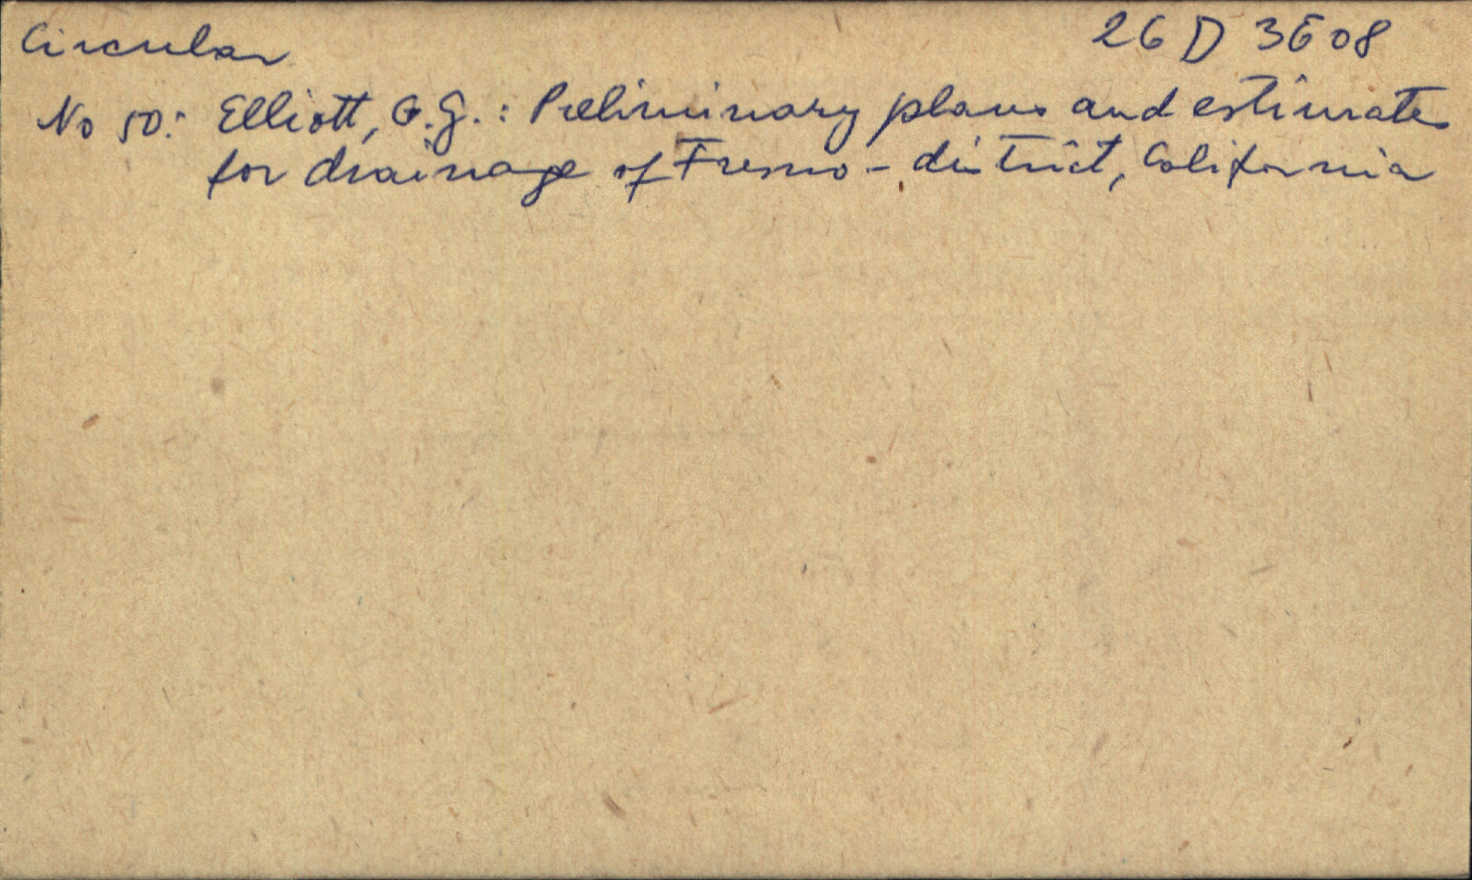 Circular
26 D 3608
No 50: Elliott, G.G.: Preliminary plans and estimates
for drainage of Fresno-district, California